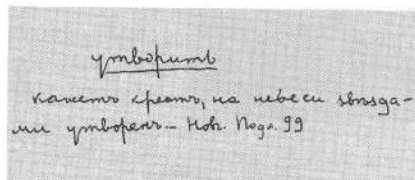 утворить
кажетъ крестъ, на небеси звѣзда-
ми утворенъ — Нов. Подл. 99